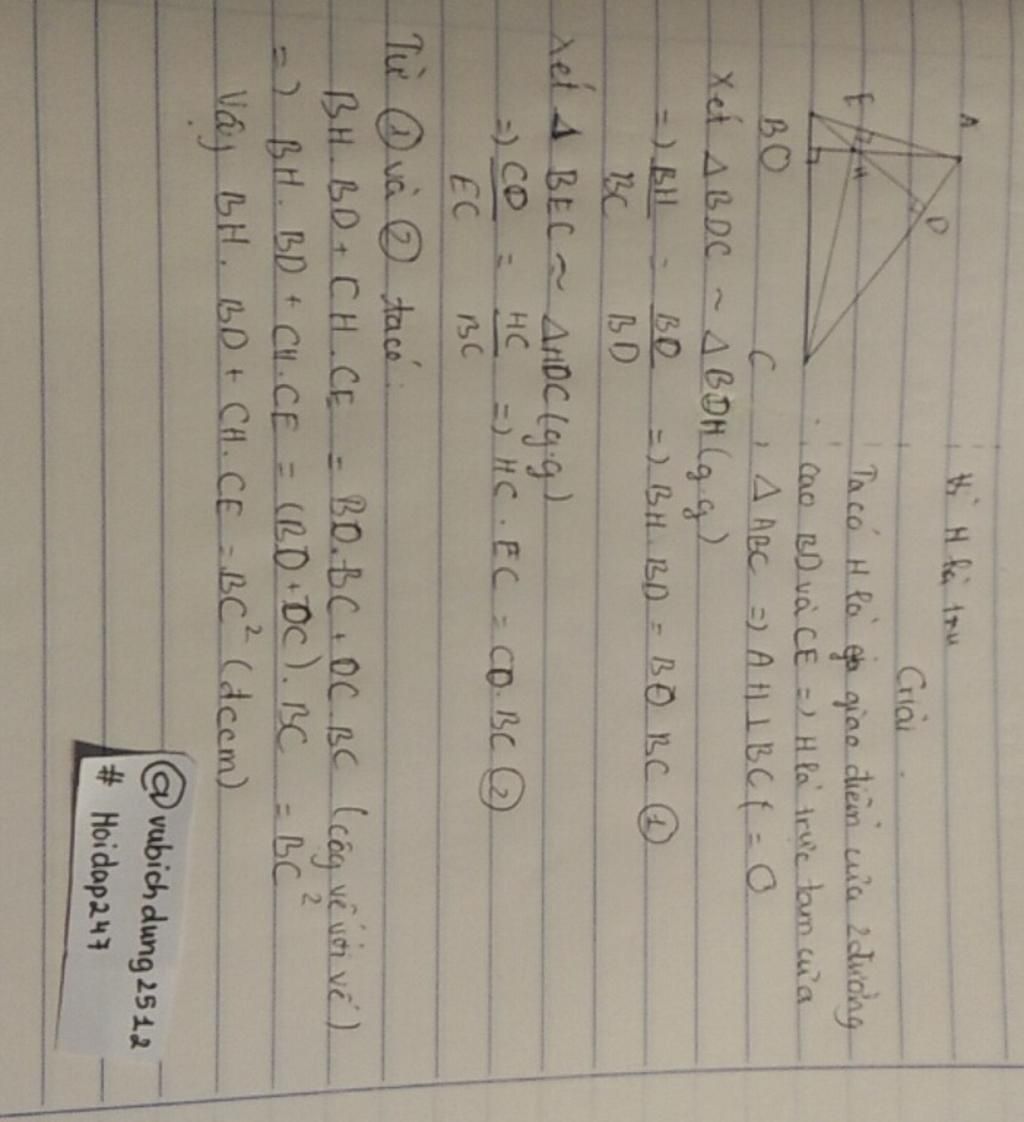 A
D
E
H
B O C
thì H là trư
Giải.
Ta có H là giao điểm của 2 đường
cao BD và CE => H là trực tam của
, Δ ABC => AH⊥BC { = O
Xét Δ BDC ~ Δ BOH (g.g)
=> BH/BC = BO/BD => BH. BD = BO BC ①
Xét Δ BEC ~ ΔHOC (g.g)
=> CO/EC = HC/BC => HC. EC = CO. BC ②
Từ ① và ② ta có:
BH. BD + CH. CE = BO. BC + OC. BC (cộg vế với vế)
=> BH. BD + CH. CE = (BO + OC). BC = BC²
Vây BH. BD + CH. CE = BC² (đccm)
@vubichdung2512
# Hoidap247